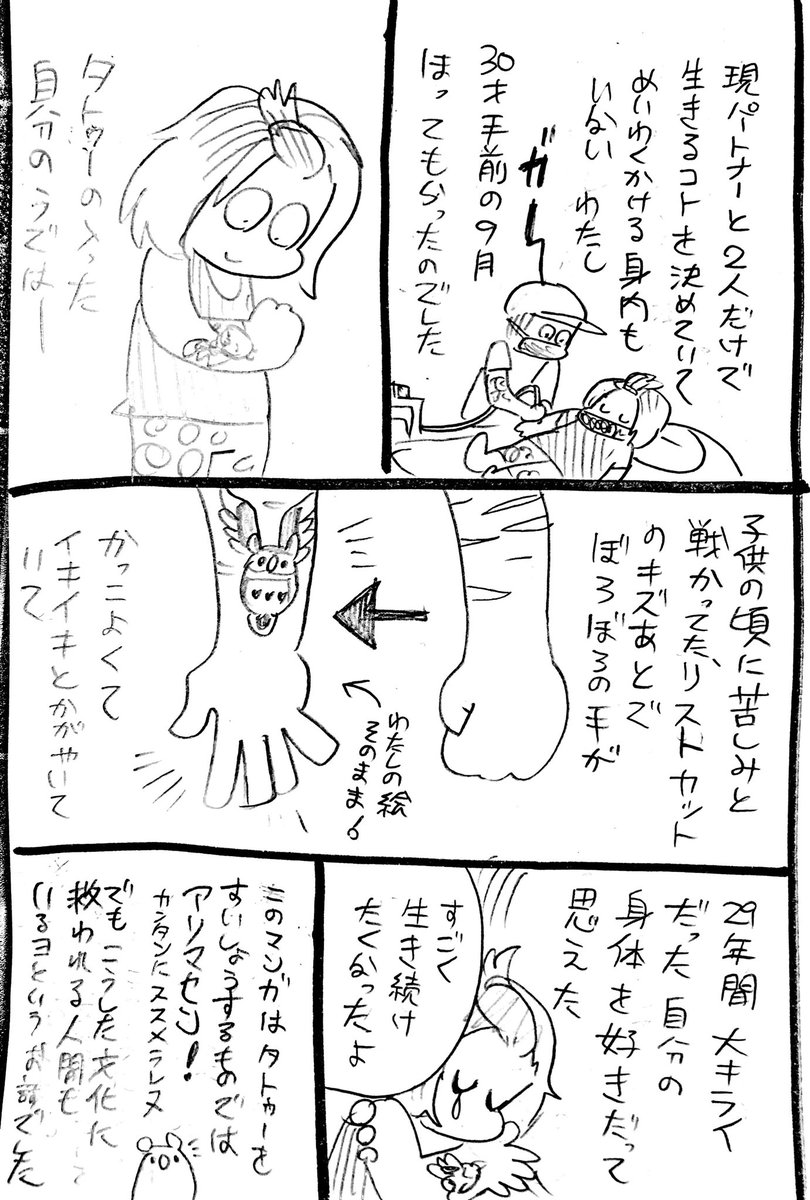 現パートナーと2人だけで
生きるコトを決めていて
めいわくかける身内も
いない わたし
30才手前の9月
ほってもらったのでした
ガーー
タトゥーの入った
自分のうではー
子供の頃に苦しみと
戦かってた、リストカット
のキズあとで
ぼろぼろの手が
わたしの絵
そのまま!
かっこよくて
イキイキとかがやいて
いて
29年間 大キライ
だった 自分の
身体を好きだって
思えた
すごく
生き続け
たくなったよ
このマンガはタトゥーを
すいしょうするものでは
アリマセン!
カンタンにススメラレヌ
でも こうした文化に
救われる人間も
いるヨというお話でした